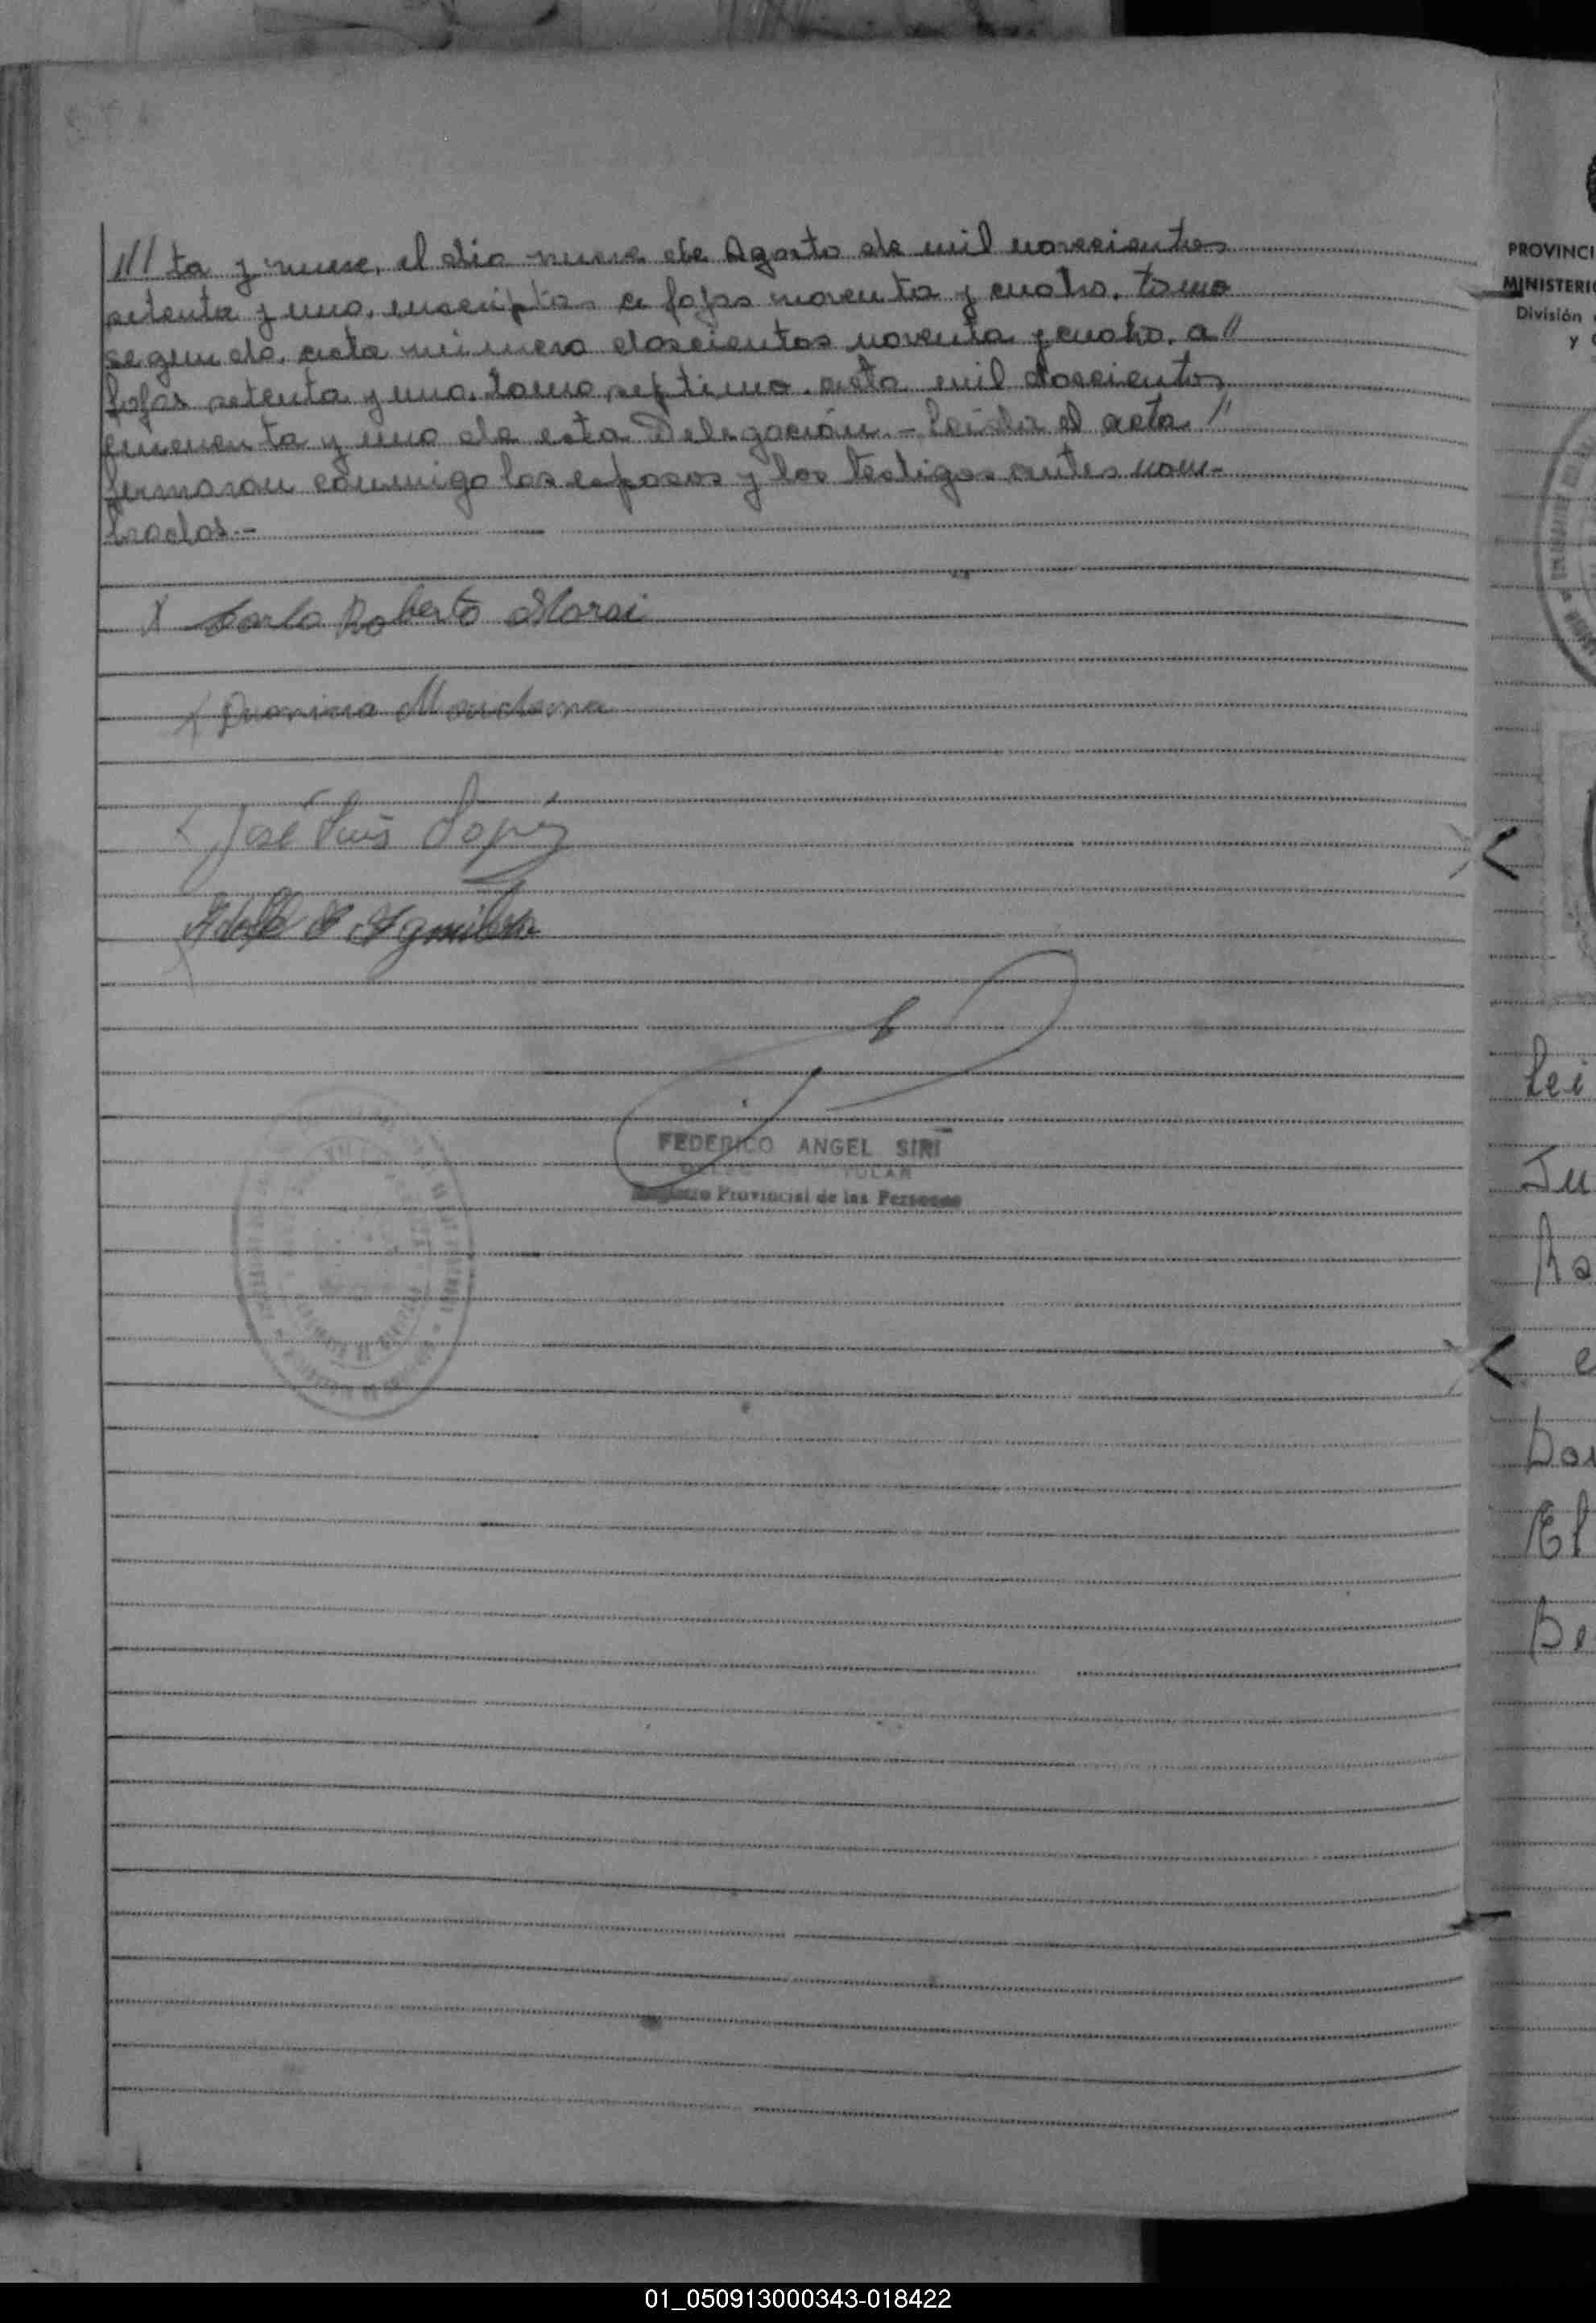 /// ta y nueve, el dia nueve de Agosto de mil novecientos
setenta y uno, inscriptas a fojas noventa y cuatro, tomo
segundo, acta número doscientos noventa y cuatro, a //
fojas setenta y uno, tomo septimo, acta mil doscientos
cincuenta y uno de esta Delegación.- Leida el acta //
firmaron conmigo los esposos y los testigos antes nom-
brados.-
X Carlo Roberto
X
X José Luis Lopez
Adolfo
FEDERICO ANGEL SIRI
Registro Provincial de las Personas
PROVINCI
MINISTERIO
División
y
Lei
Ju
Ra
e
Dor
El
Be
01_050913000343-018422